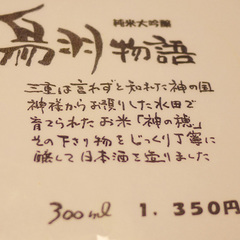 純米大吟醸
鳥羽物語
三重は言わずと知れた神の国
神様からお預りした水田で
育てられたお米「神の穂」
その下さり物をじっくり丁寧に
醸して日本酒を造りました
300ml 1.350円